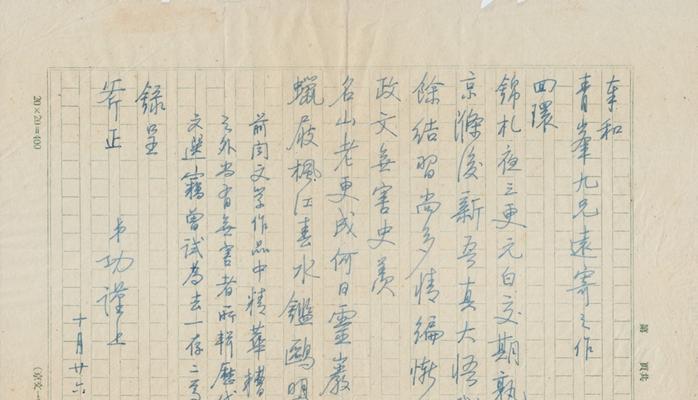 奉和
青峯九兄遠寄之作
四環
錦札夜三更元白交期孰
京滌後新吾真大悟
餘結習尚多情編慚
政文無害史羨
名山老更成何日靈巖
蠟屐楓江春水鑑鷗明
前閱文學作品中精華糟
之外尚有無害者所輯歷代
文選竊曾試為去一存二
錄呈
斧正
弟功謹上
十月廿六
20×20=400
第 頁共
(京文一